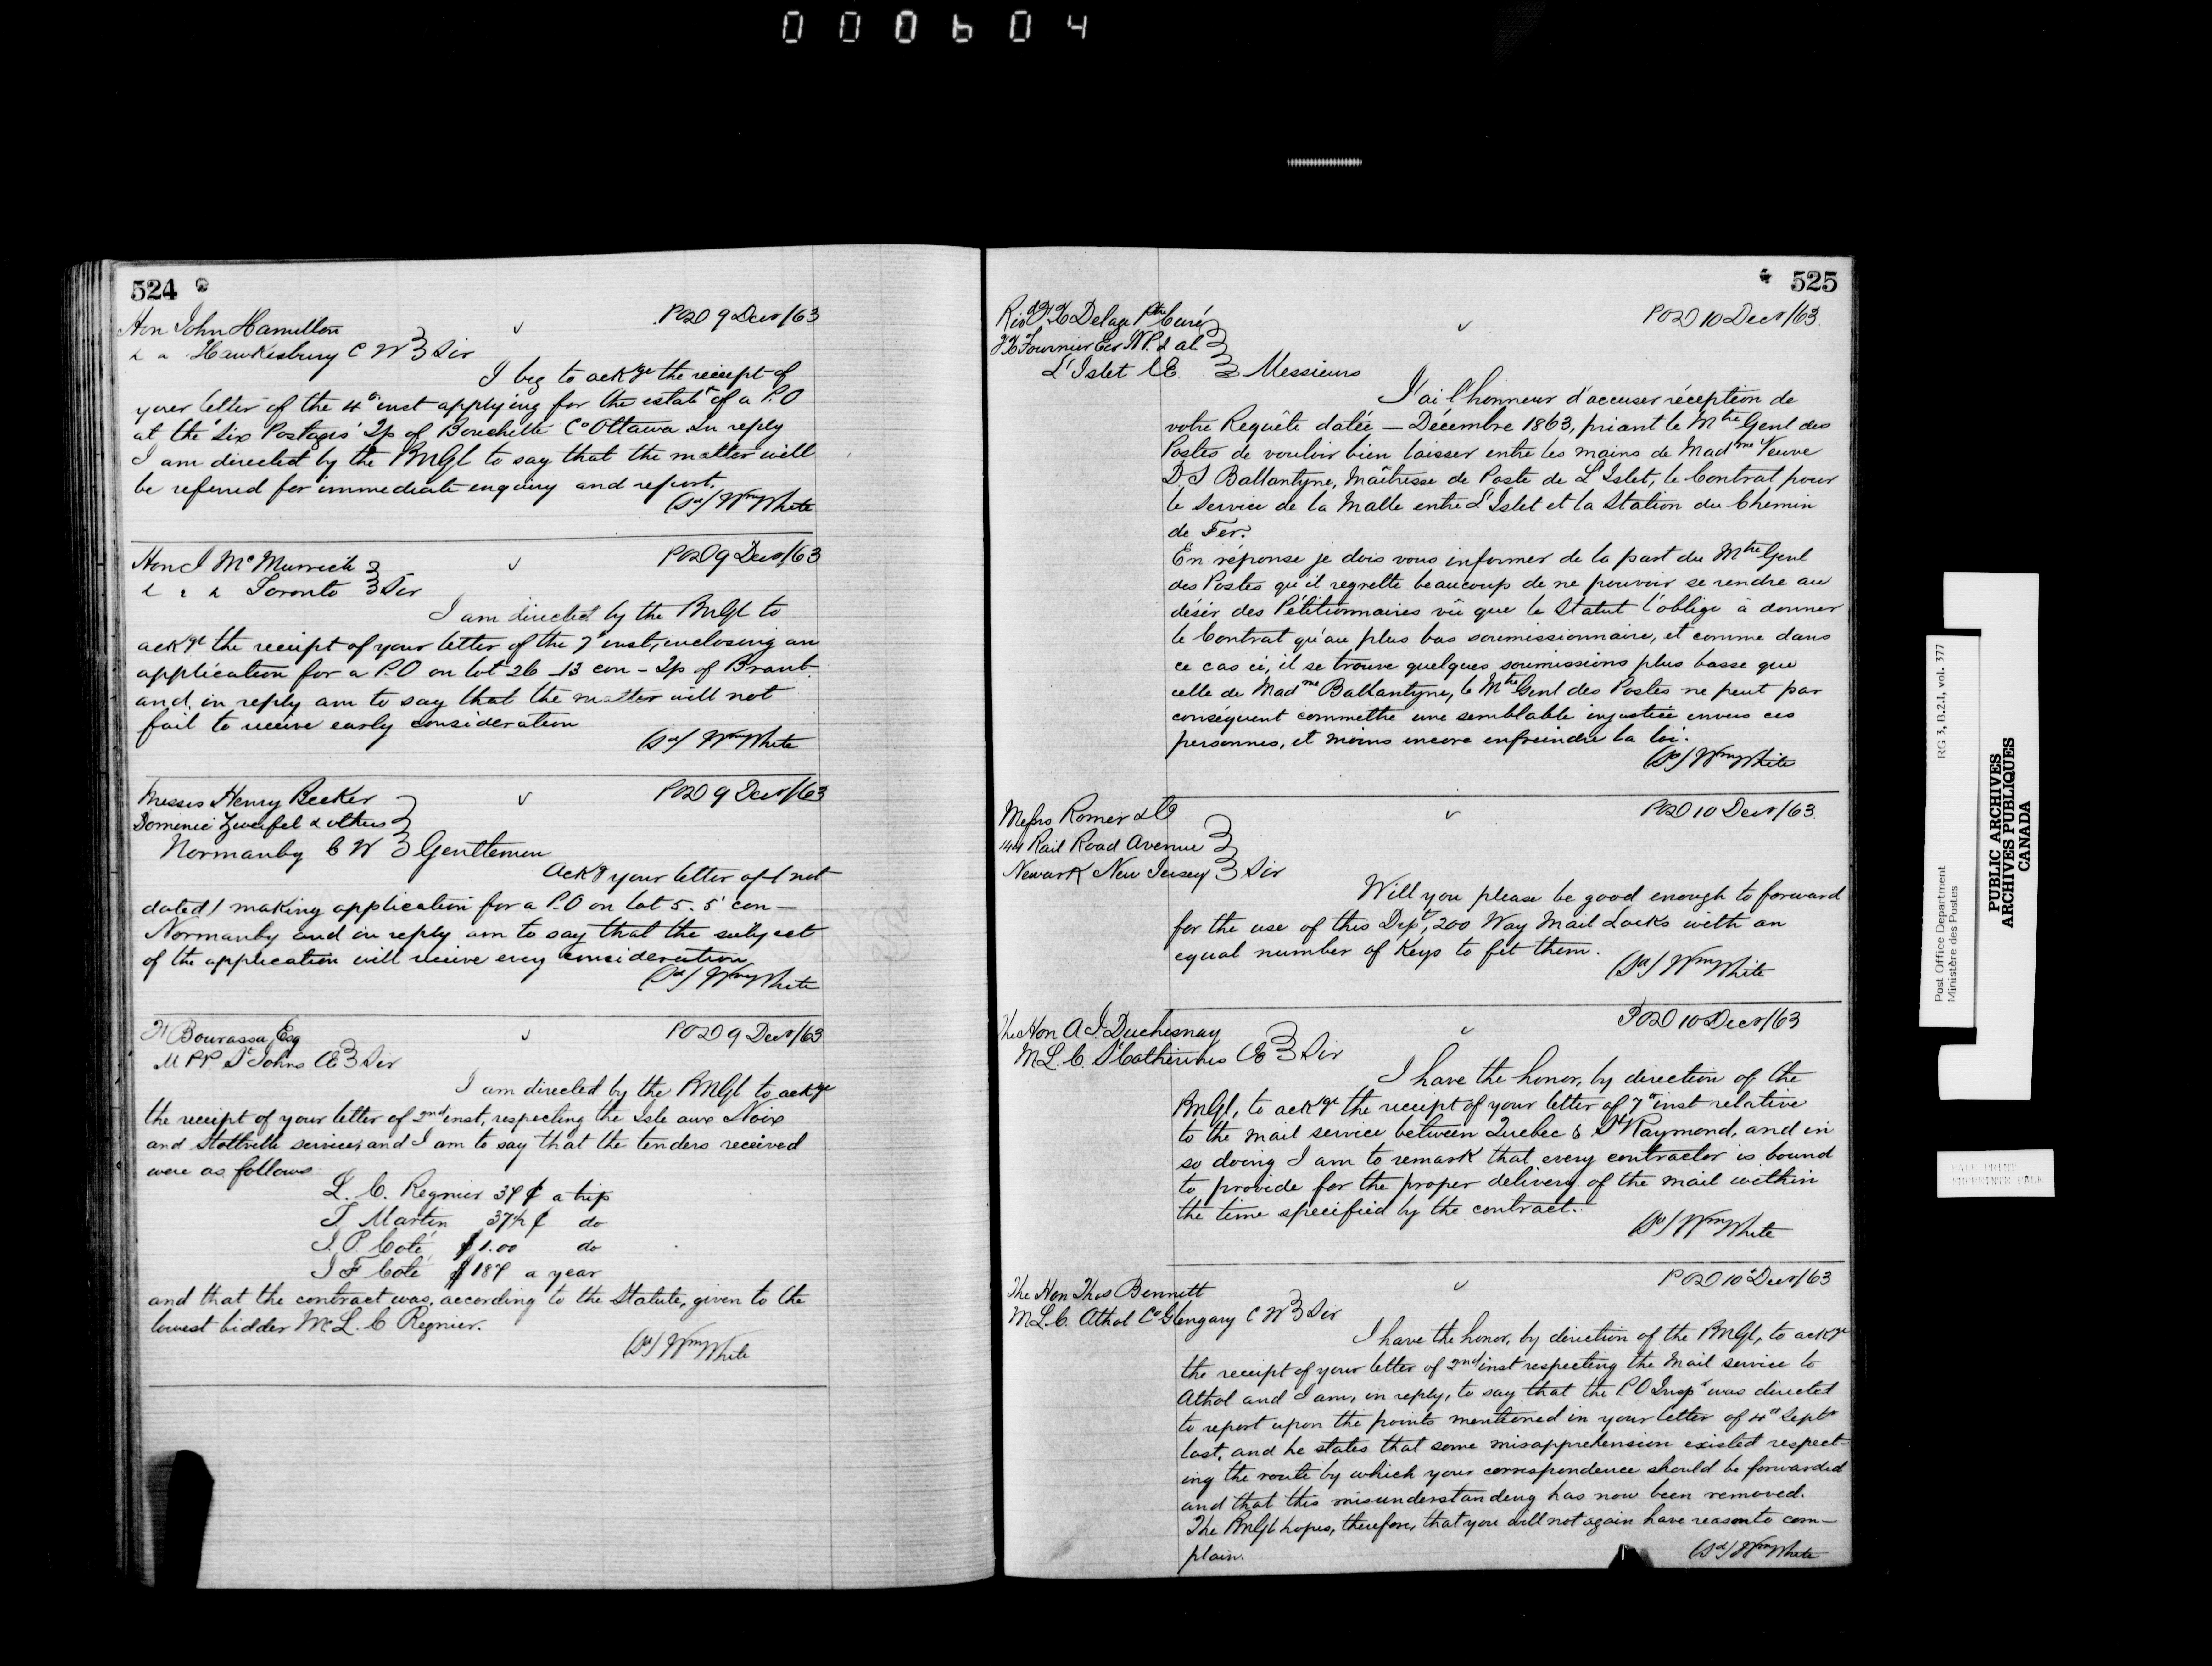 000604
524
POD 9 Decr/63
Hon John Hamilton
Hawkesbury C W Sir
I beg to ackge the receipt of
your letter of the 4th inst applying for the establt of a P.O
at the "Six Portages" Tp of Bouchette Co Ottawa. In reply
I am directed by the PMGl to say that the matter will
be referred for immediate enquiry and report.
(Sd/ Wm White
POD 9 Decr/63
Hon J McMurrich
Toronto Sir
I am directed by the PMGl to
ackge the receipt of your letter of the 7th inst, inclosing an
application for a P.O on lot 26 - 13 con - Tp of Brant
and in reply am to say that the matter will not
fail to receive early consideration
(Sd/ Wm White
POD 9 Decr/63
Messrs Henry Becker
Domenic Zweifel & others
Normanby C W Gentlemen
Ackg your letter of (not
dated) making application for a P.O on lot 5. 5' con —
Normanby and in reply am to say that the subject
of the application will receive every consideration
(Sd/ Wm White
POD 9 Decr/63
Bourassa, Esq
M PP St Johns CE Sir
I am directed by the PMGl to ackge
the receipt of your letter of 2nd inst, respecting the Isle aux Noix
and Stottville services, and I am to say that the tenders received
were as follows
L. C. Regnier 34 ¢ a trip
T. Martin 37½ ¢ do
J. P. Coté $1.00 do
J F Coté $187 a year
and that the contract was, according to the Statute, given to the
lowest bidder Mr L. C Regnier.
(Sd/ Wm White
525
POD 10 Decr/63
Revd F.X Delage Ptre Curé
F X Fournier Ecr N.P. & al
L'Islet C E Messieurs
J'ai l'honneur d'accuser réception de
votre Requête datée — Décembre 1863, priant le Mtre Genl des
Postes de vouloir bien laisser entre les mains de Madme Veuve
D. S Ballantyne, Maîtresse de Poste de L'Islet, le Contrat pour
le Service de la Malle entre L'Islet et la Station du Chemin
de Fer.
En réponse je dois vous informer de la part du Mtre Genl
des Postes qu'il regrette beaucoup de ne pouvoir se rendre au
désir des Pétitionnaires vû que le Statut l'oblige à donner
le Contrat qu'au plus bas soumissionnaire, et comme dans
ce cas ci, il se trouve quelques soumissions plus basse que
celle de Madme Ballantyne, le Mtre Genl des Postes ne peut par
conséquent commettre une semblable injustice envers ces
personnes, et moins encore enfreindre la loi.
(Sd/ Wm White
POD 10 Decr/63
Messrs Romer & Co
144 Rail Road Avenue
Newark New Jersey Sir
Will you please be good enough to forward
for the use of this Dept, 200 Way Mail Locks with an
equal number of Keys to fit them.
(Sd/ Wm White
POD 10 Decr/63
The Hon A J Duchesnay
M.L.C. St Catherines CE Sir
I have the honor, by direction of the
PMGl, to ackge the receipt of your letter of 7th inst relative
to the mail service between Quebec & St Raymond, and in
so doing I am to remark that every contractor is bound
to provide for the proper delivery of the mail within
the time specified by the contract.
(Sd/ Wm White
POD 10 Decr/63
The Hon Thos Bennett
M.L.C. Athol Co Glengary C W Sir
I have the honor, by direction of the PMGl, to ackge
the receipt of your letter of 2nd inst respecting the Mail service to
Athol and I am, in reply, to say that the P.O Inspr was directed
to report upon the points mentioned in your letter of 4th Septr
last, and he states that some misapprehension existed respect-
ing the route by which your correspondence should be forwarded
and that this misunderstanding has now been removed.
The PMGl hopes, therefore, that you will not again have reason to com-
plain.
(Sd/ Wm White
Post Office Department
Ministère des Postes
RG 3, B.2.I, vol. 377
PUBLIC ARCHIVES
ARCHIVES PUBLIQUES
CANADA